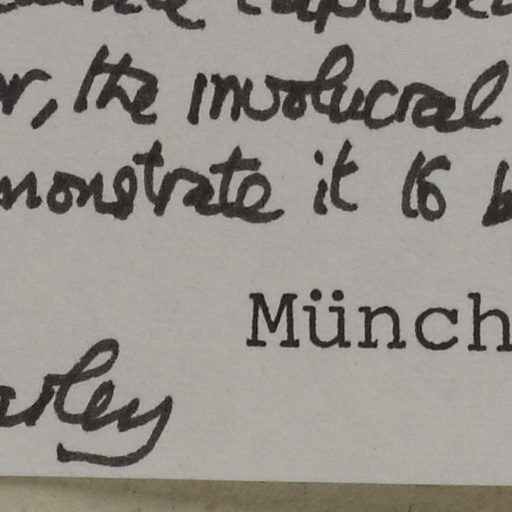 r, the involucral
monstrate it to b
Münch
arley